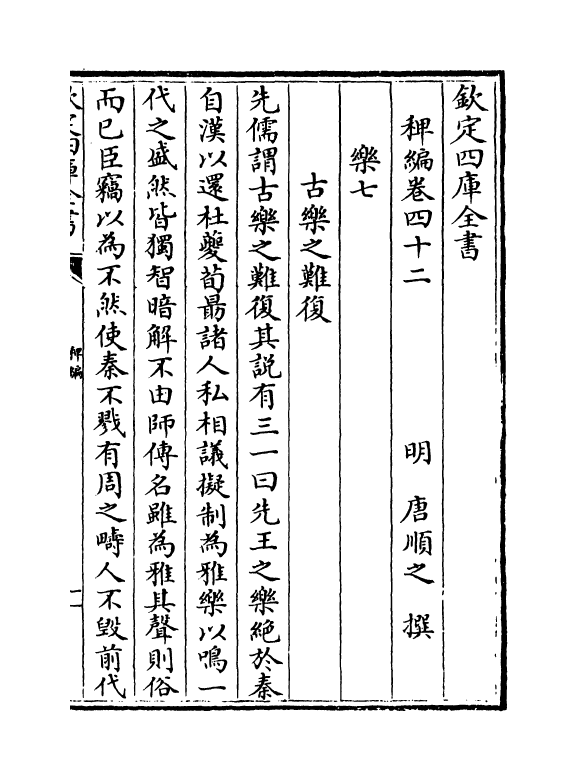 欽定四庫全書
稗編卷四十二　明　唐順之　撰
樂七
古樂之難復
先儒謂古樂之難復其説有三一曰先王之樂絶於秦
自漢以還杜夔荀勗諸人私相議擬制為雅樂以鳴一
代之盛然皆獨智暗解不由師傳名雖為雅其聲則俗
而已臣竊以為不然使秦不戮有周之疇人不毀前代
欽定四庫全書
稗編
一